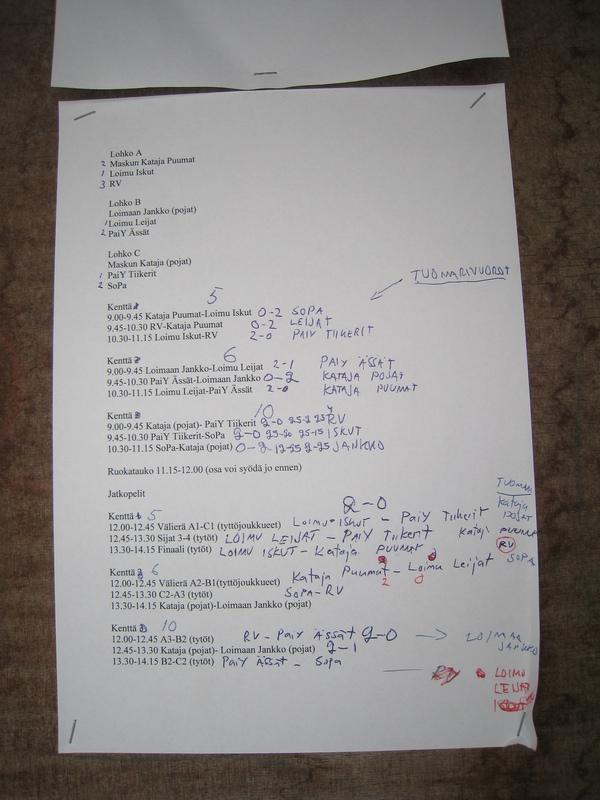 Lohko A
2 Maskun Kataja Puumat
1 Loimu Iskut
3 RV
Lohko B
Loimaan Jankko (pojat)
1 Loimu Leijat
2 PaiY Ässät
Lohko C
Maskun Kataja (pojat)
1 PaiY Tiikerit
2 SoPa
TUOMARIVUOROT
Kenttä 5
9.00-9.45 Kataja Puumat-Loimu Iskut 0-2 SOPA
9.45-10.30 RV-Kataja Puumat 0-2 LEIJAT
10.30-11.15 Loimu Iskut-RV 2-0 PAIY TIIKERIT
Kenttä 6
9.00-9.45 Loimaan Jankko-Loimu Leijat 2-1 PAIY ÄSSÄT
9.45-10.30 PaiY Ässät-Loimaan Jankko 0-2 KATAJA POJAT
10.30-11.15 Loimu Leijat-PaiY Ässät 2-0 KATAJA PUUMAT
Kenttä 10
9.00-9.45 Kataja (pojat)- PaiY Tiikerit 2-0 RV
9.45-10.30 PaiY Tiikerit-SoPa 2-0 25-20 25-15 ISKUT
10.30-11.15 SoPa-Kataja (pojat) 0-2 JANKKO
Ruokatauko 11.15-12.00 (osa voi syödä jo ennen)
Jatkopelit
2-0
TUOMARI
Kenttä 5
12.00-12.45 Välierä A1-C1 (tyttöjoukkueet) LOIMU ISKUT - PAIY Tiikerit Kataja POJAT
12.45-13.30 Sijat 3-4 (tytöt) LOIMU LEIJAT - PAIY TIIKERIT Kataja PUUMAT
13.30-14.15 Finaali (tytöt) LOIMU ISKUT- Kataja PUUMAT RV
Kenttä 6
12.00-12.45 Välierä A2-B1(tyttöjoukkueet) Kataja Puumat - Loimu Leijat SOPA
2 0
12.45-13.30 C2-A3 (tytöt) SOPA-RV
13.30-14.15 Kataja (pojat)-Loimaan Jankko (pojat)
Kenttä 10
12.00-12.45 A3-B2 (tytöt) RV- PAIY ÄSSÄT 2-0 LOIMAA JANKKO
12.45-13.30 Kataja (pojat)- Loimaan Jankko (pojat) 2-1
13.30-14.15 B2-C2 (tytöt) PAIY ÄSSÄT - SOPA
LOIMU
LEIJAT